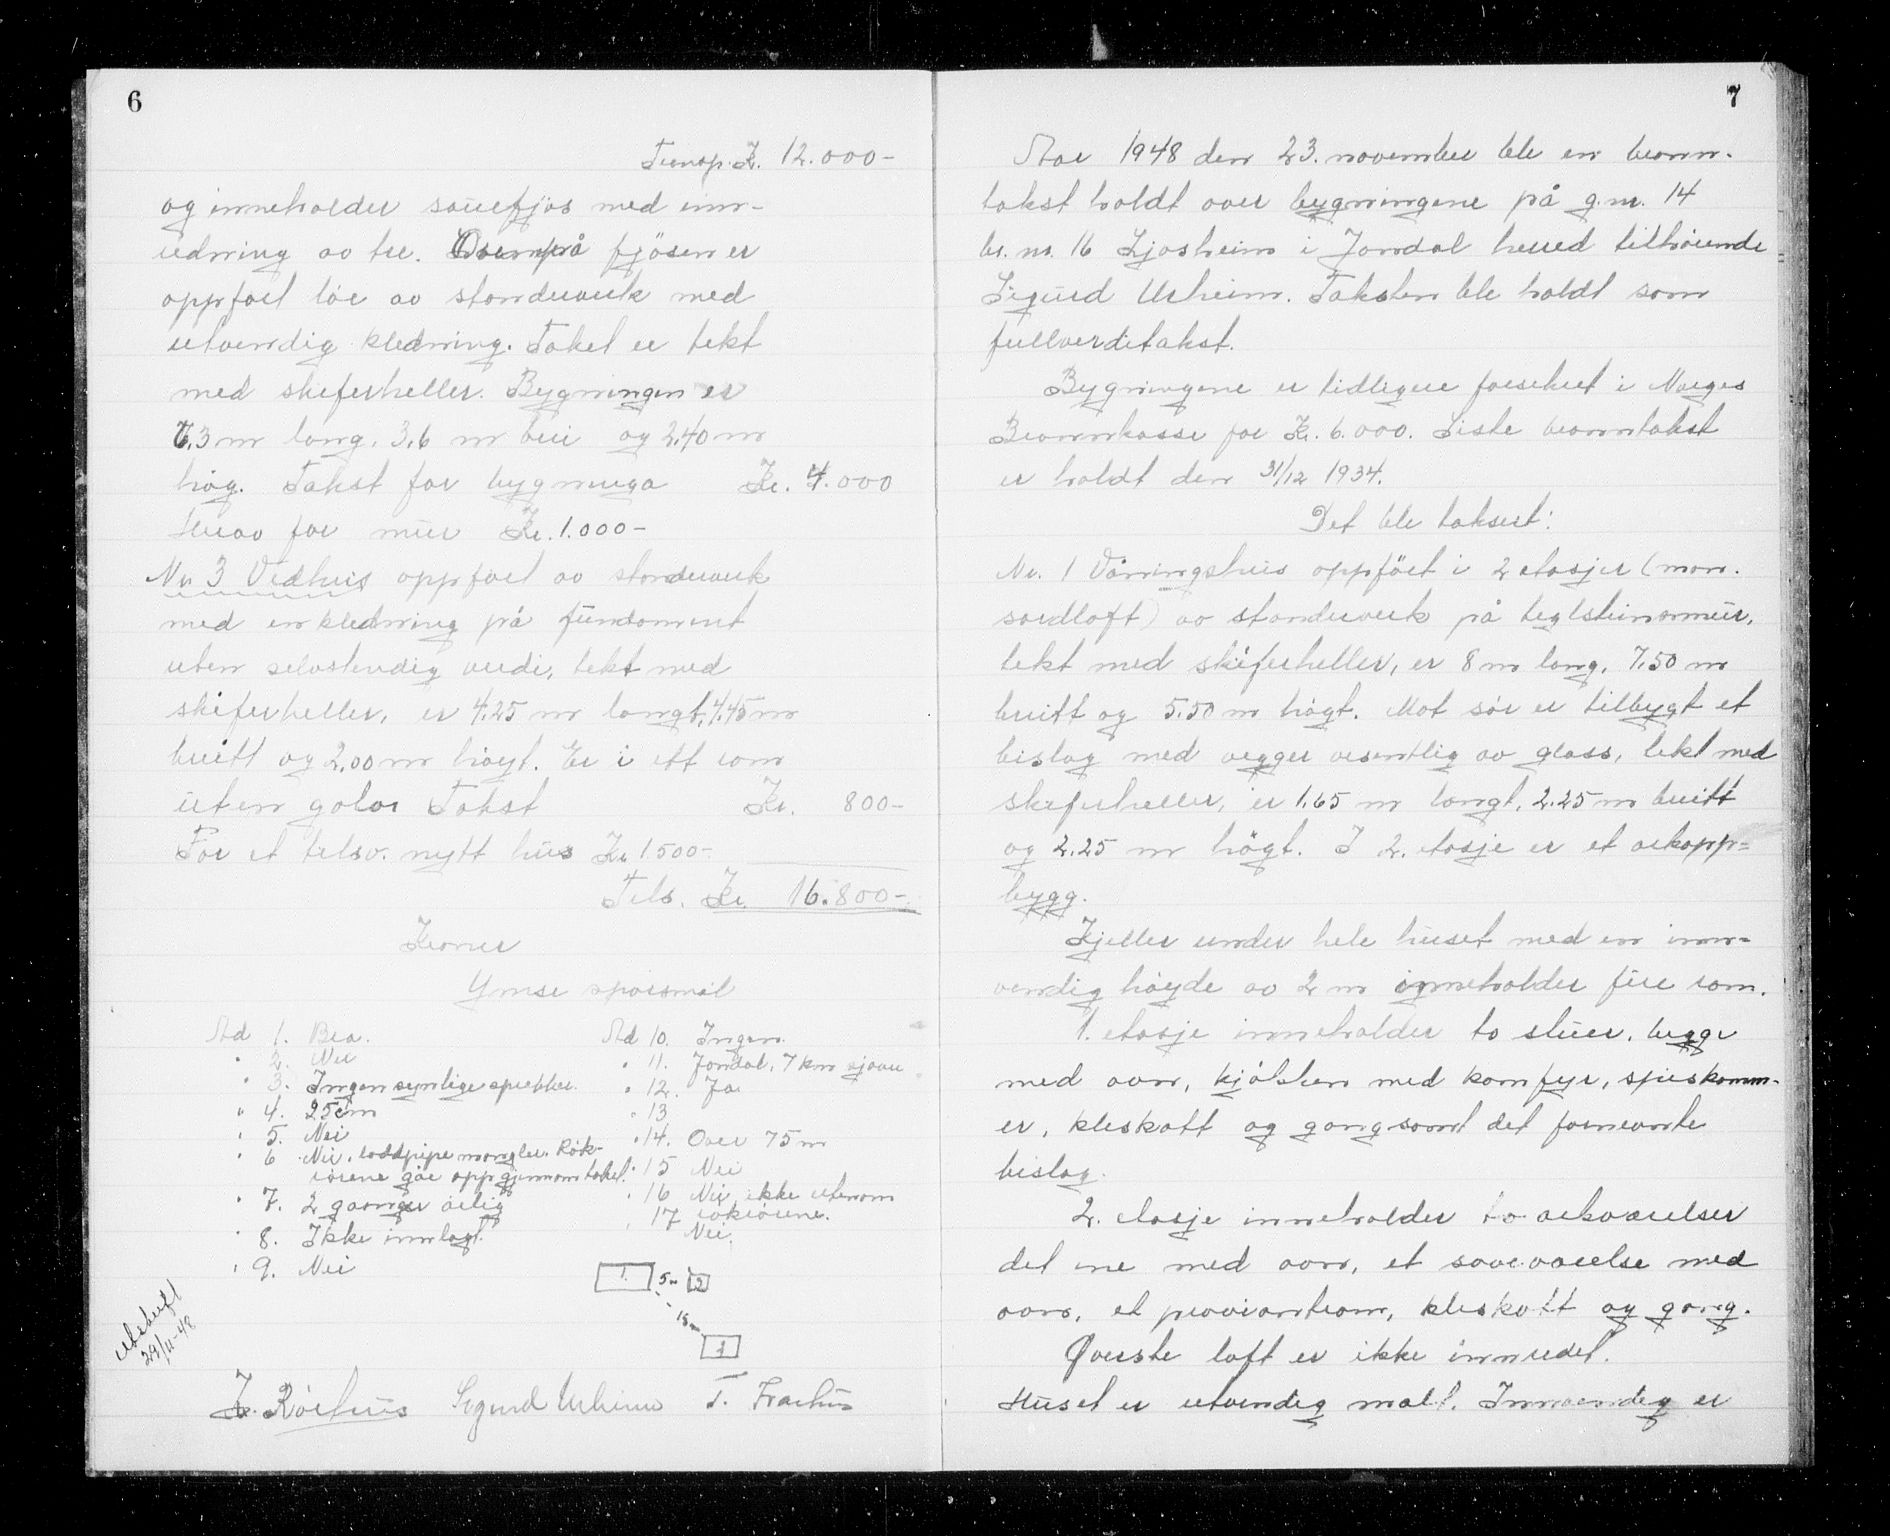 6
Transp. Kr. 12.000-
og inneholder sauefjøs med inn-
redning av tre. Ovenpå fjøsen er
oppført løe av stenderverk med
utvendig kledning. Taket er tekt
med skiferheller. Bygningen er
6,3 m lang, 3,6 m brei og 2,40 m
høg. Takst for bygninga Kr. 4.000
Herav for mur Kr. 1.000-
Nr 3 Vedhus oppført av stenderverk
med en kledning på fundament
uten selvstendig verdi, tekt med
skiferheller, er 4,25 m langt, 4,45 m
breitt og 2,00 m høgt. Er i ett rom
uten golv Takst Kr. 800-
For et tilsv. nytt hus Kr 1500-
Tils. Kr. 16.800-
Kroner
Ymse spørsmål
Ad 1. Bra.
" 2. Nei
" 3. Ingen synlige sprekker.
" 4. 25 cm
" 5. Nei
" 6 Nei, loddpipe mangler. Røk-
rørene går opp gjennom taket.
" 7. 2 ganger årlig
" 8. Ikke innlagt.
" 9. Nei
Ad 10. Ingen.
" 11. Jondal, 7 km sjøvei
" 12. Ja
" 13
" 14. Over 75 m
" 15 Nei
" 16 Nei, ikke utenom
rökrörene.
" 17 Nei.
1. 5 m 2
15 m
3
Utskrift
29/11-48
Sigurd Urheim
7
Aar 1948 den 23. november ble en brann-
takst holdt over bygningene på g.nr. 14
br. nr. 16 Ljosheim i Jondal herred tilhørende
Sigurd Urheim. Taksten ble holdt som
fullverditakst.
Bygningene er tidligere forsikret i Norges
Brannkasse for Kr. 6.000. Siste branntakst
er holdt den 31/12 1934.
Det ble taksert:
Nr. 1 Våningshus oppført i 2 etasjer (man-
sardloft) av stenderverk på teglsteinsmur,
tekt med skiferheller, er 8 m lang, 7,50 m
breitt og 5.50 m høgt. Mot sør er tilbygt et
bislag med vegger vesentlig av glass, tekt med
skiferheller, er 1,65 m langt, 2.25 m breitt
og 2.25 m högt. I 2. etasje er et arkopp=
bygg.
Kjeller under hele huset med en inn=
vendig høyde av 2 m inneholder fire rom.
1. etasje inneholder to stuer, begge
med ovn, kjøkken med komfyr, spiskamm-
er, kleskott og gang samt det fornevnte
bislag.
2. etasje inneholder to arkværelser
det ene med ovn, et soveværelse med
ovn, et proviantrom, kleskott og gang.
Øverste loft er ikke innredet.
Huset er utvendig malt. Innvendig er